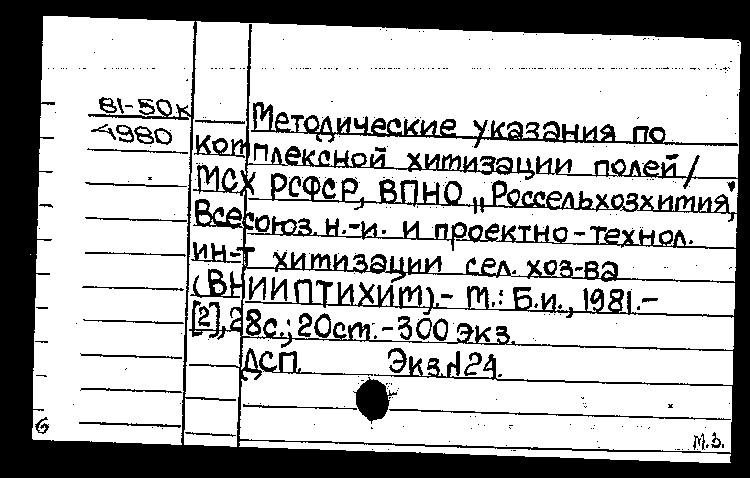 81-50к
4980
Методические указания по
комплексной химизации полей /
МСХ РСФСР, ВПНО „Россельхозхимия",
Всесоюз. н.-и. и проектно-технол.
ин-т химизации сел. хоз-ва
(ВНИИПТИХИМ).- М.: Б.и., 1981.-
[2], 28с.; 20см.-300 экз.
ДСП. Экз.№24.
6 М.З.